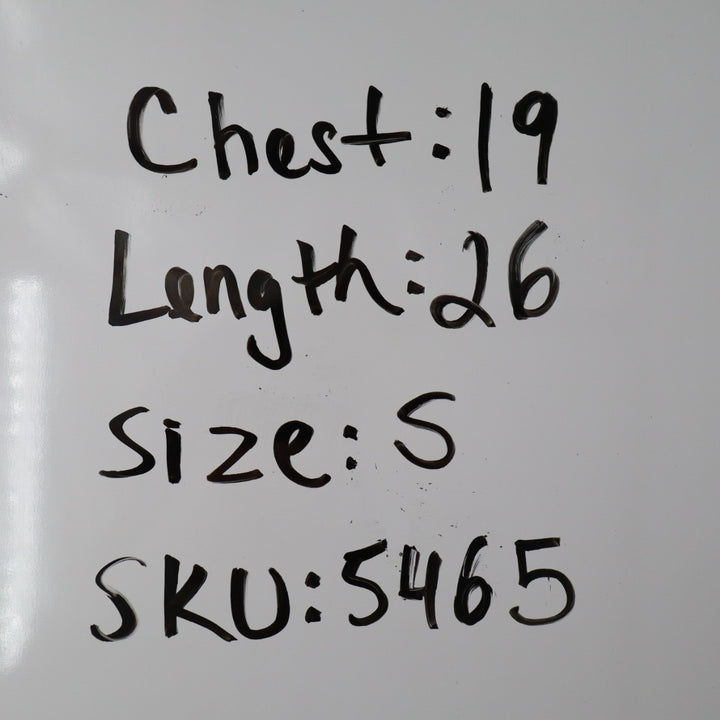 Chest:19
Length:26
Size:S
SKU:5465